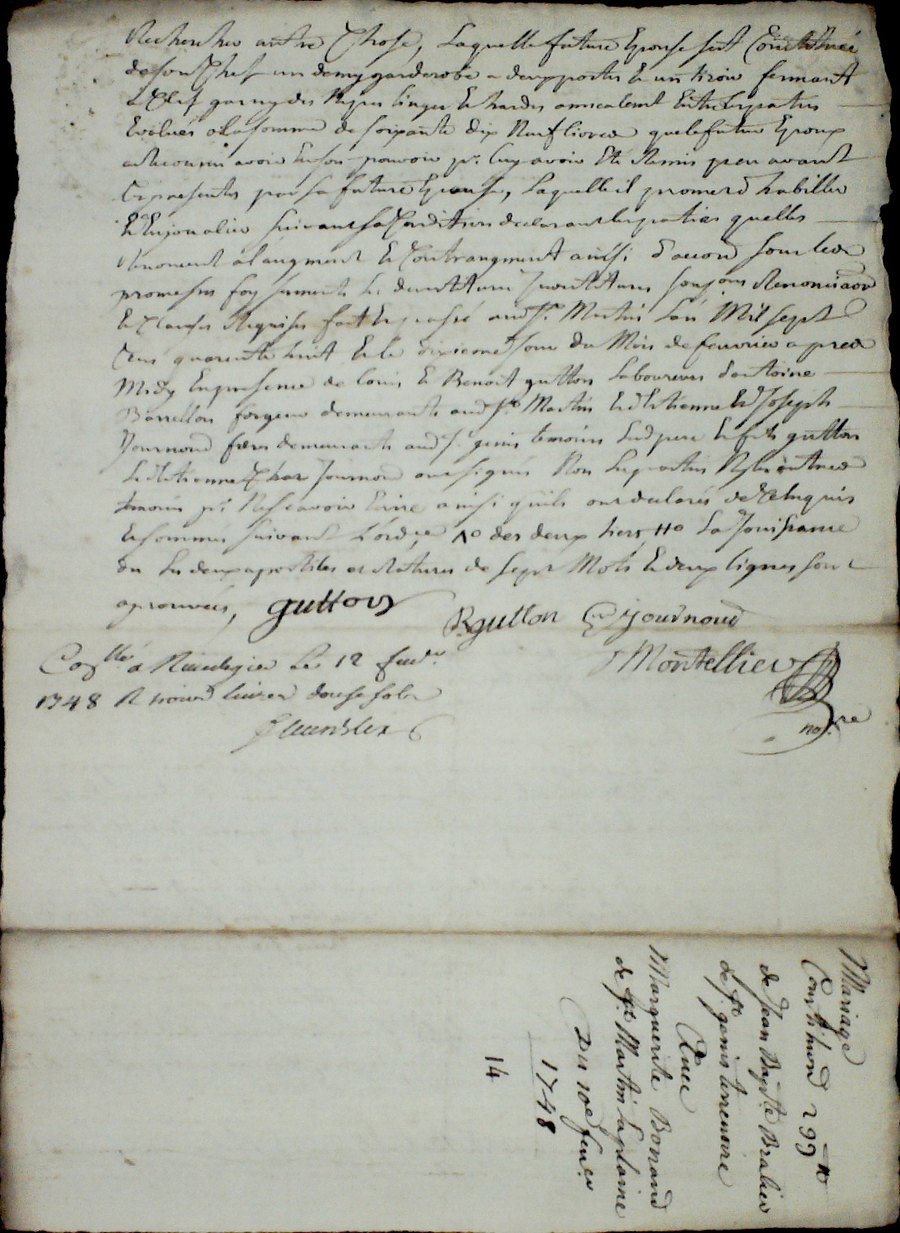 Rechercher autre Chose, Laquelle future Epouse s'est Constituée
de son Chef un demy garderobe a deux portes & un tiroir fermant
à Clef garny des linges & hardes amicalemt Entre les parties
Evalués a la somme de soixante dix Neuf livres que le futur Epoux
a reconnu avoir En son pouvoir pr. luy avoir Eté Remis peu avant
Ces presentes par sa future Epouse, Laquelle il promerd habiller
& Enjoualier suivant sa Condition declarant les parties quelles
Renoncent a l'augment & Contraugment ainsi d'accord sous leurs
promesses foy serments
& Clauses Requises fait & passé aud. St. Martin L'an Mil sept
Cens quarente huit & le dixieme jour du Mois de feuvrier apres
Midy En presence de Louis & Benoit gutton Laboureurs d'antoine
forgeur demeurants aud. St. Martin & d'Etienne & Joseph
Journoud freres demeurants aud. St. genis temoins Led. pere & fils gutton
Led. Etienne Journoud ont signés Non Les parties Ny les autres
temoins pr. Ne scavoir Ecrire ainsi qu'ils ont declarés de ce Enquis
& sommés suivant L'ord.ce No des deux tiers, No La Jouissance
du Les deux apostiles et Ratures de sept Mots & deux lignes sont
aprouvées, gutton
B gutton E Journoud
Montellier
nore
Conllé a Rivedegier Le 12 feur.
1748 R trois livres douse sols
Mariage
Constitution 299
de Jean Bapte. Bralier
de St. genis terrenoire
Avec
Marguerite Bonand
de St. Martin la plaine
Du 10e feuer
1748
14